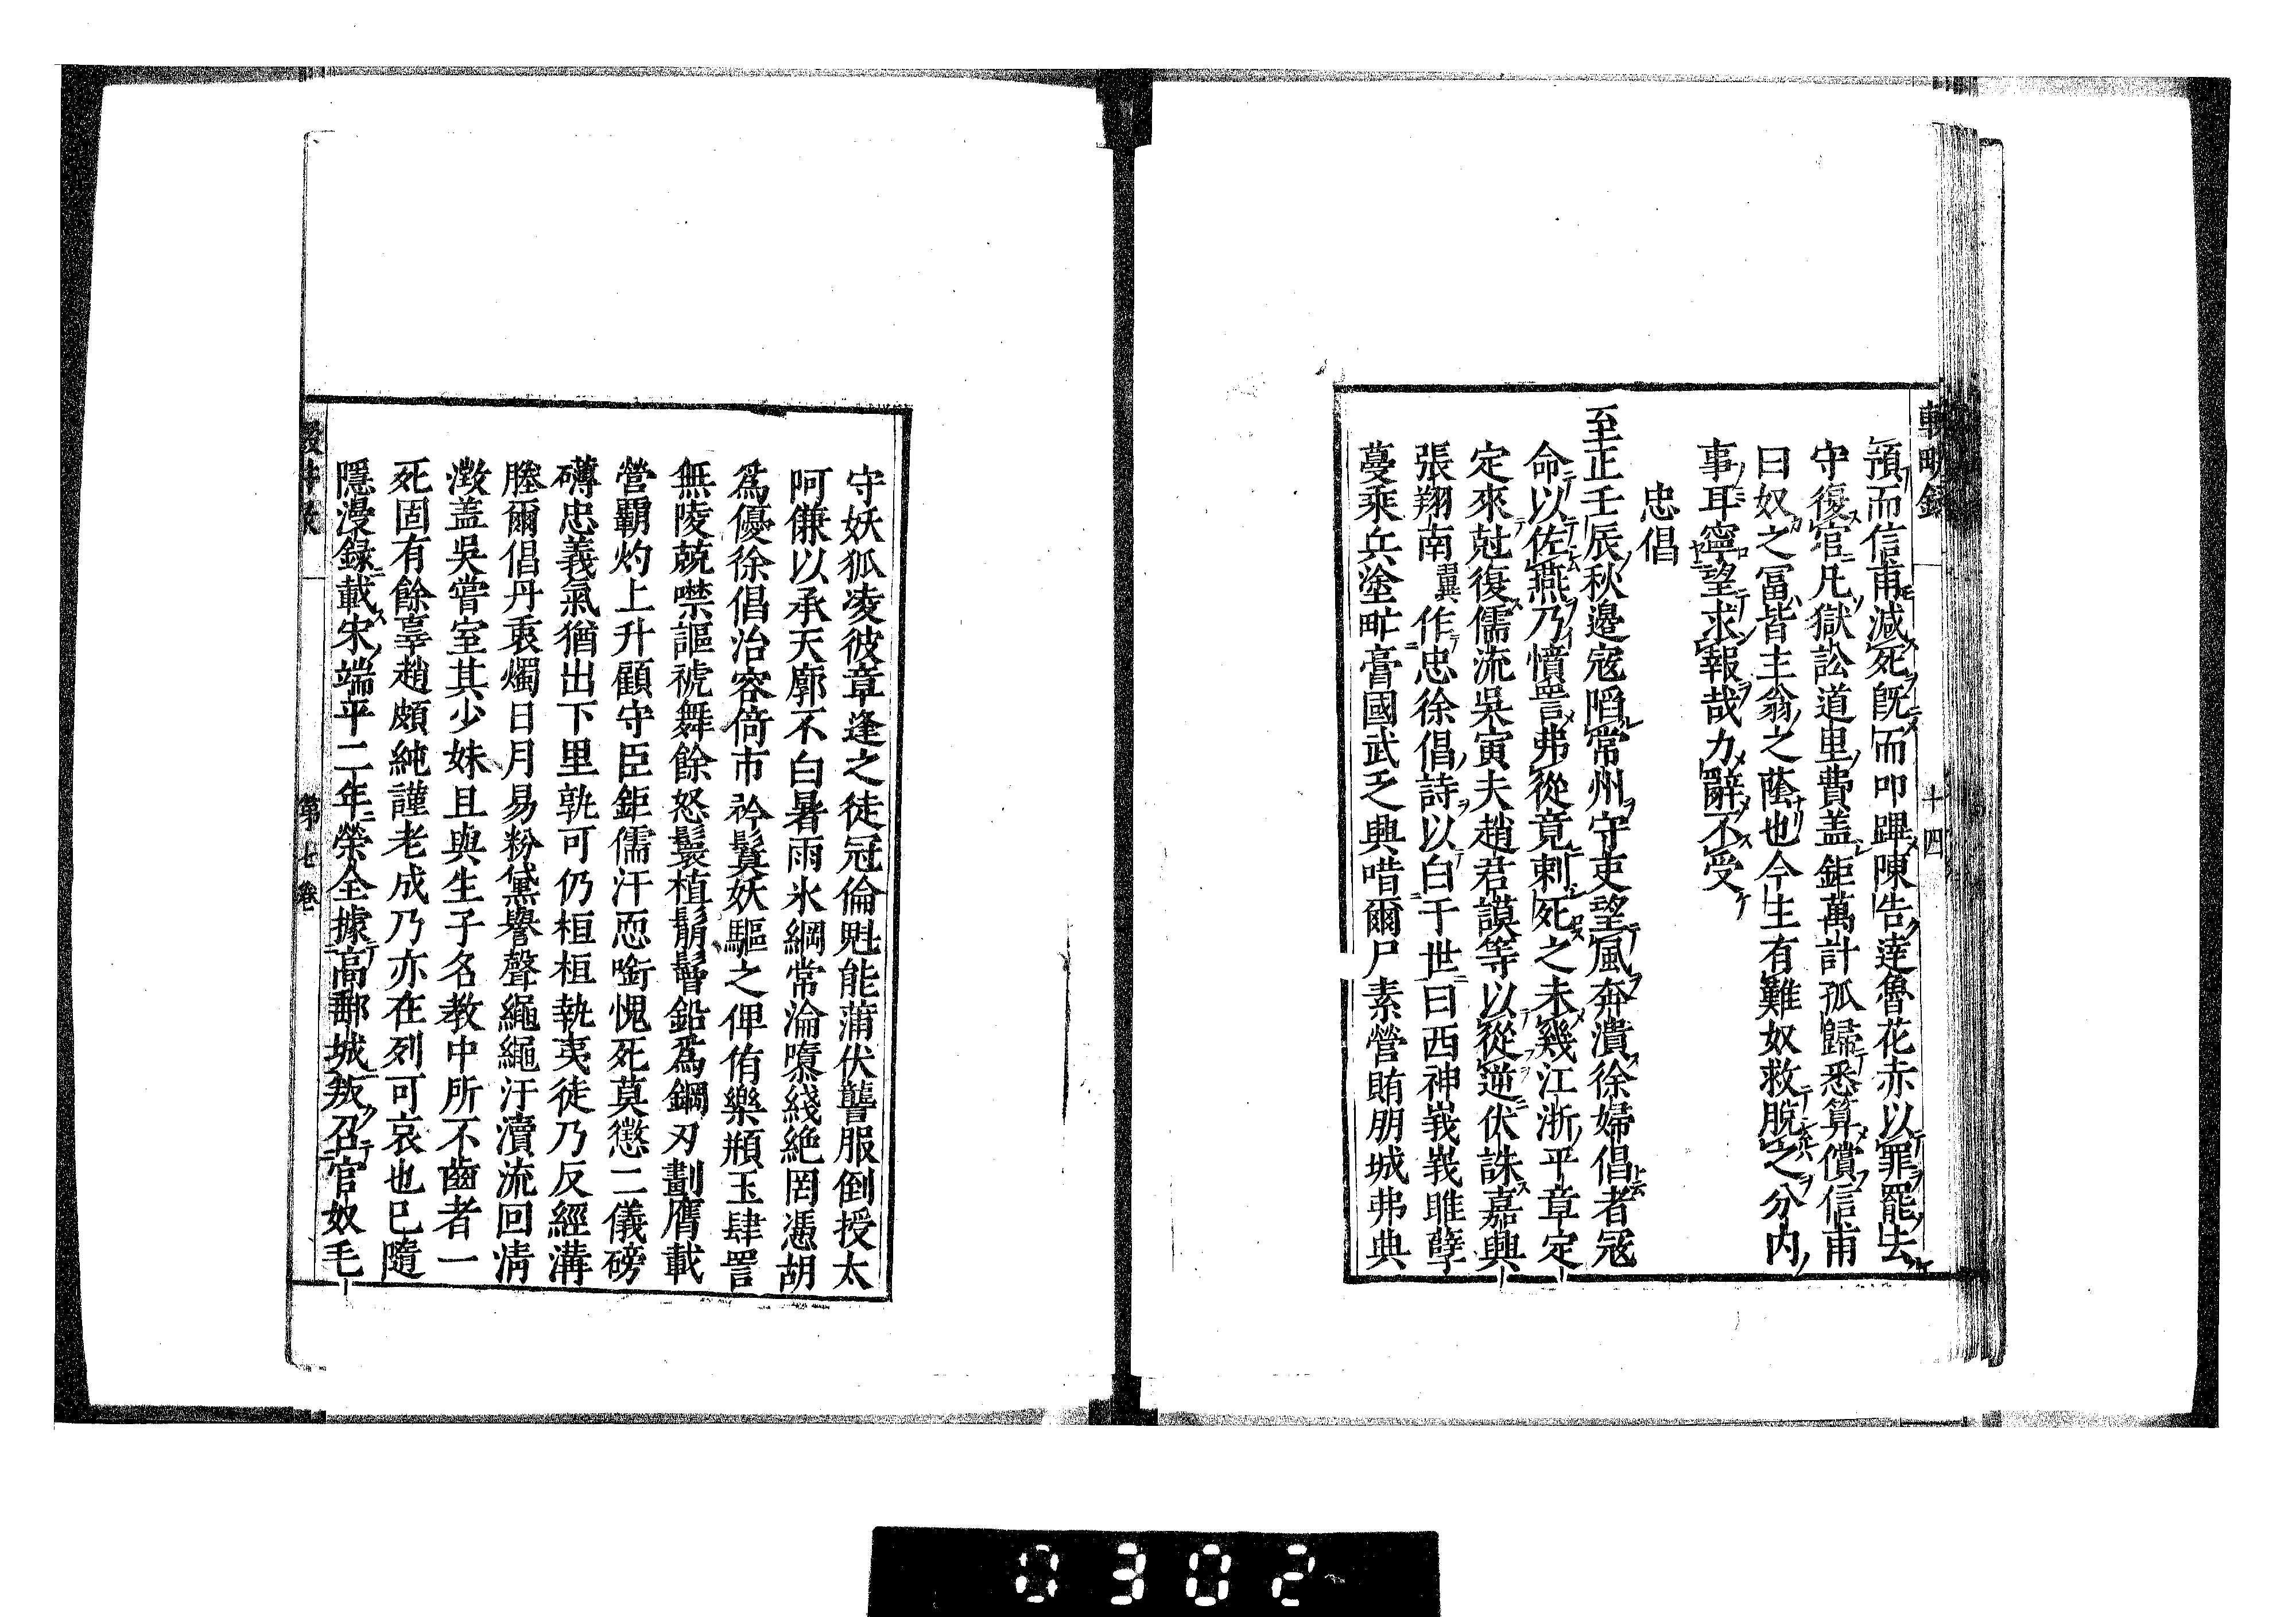 輟畊録
十四
預而信甫減死既而叩蹕陳告達魯花赤以罪罷去
守復官凡獄訟道里費盖鉅萬計孤歸悉算償信甫
曰奴之冨皆主翁之蔭也今生有難奴救脫之分内
事耳寧望求報哉力辭不受
忠倡
至正壬辰秋邊寇陷常州守吏望風奔潰徐婦倡者寇
命以佐燕乃憤詈弗從竟刺死之未幾江浙平章定
定來尅復儒流吳寅夫趙君謨等以從逆伏誅嘉興
張翔南翼作忠徐倡詩以白于世曰西神峩峩雎孽
蔓乘兵塗甿膏國武乏典唶爾尸素營賄朋城弗典
守妖狐凌彼章逢之徒冠倫魁能蒲伏讋服倒授太
呵傔以承天廓不白暑雨氷綱常淪隳綫絶罔憑胡
爲優徐倡治容倚市衿鬒妖驅之俾侑樂甁玉肆詈
無唛兢噤謳裭舞餘怒鬟植鬅鬙鉛爲鋼刃劃膺載
營霸灼上升顧守臣鉅儒汗恧衘愧死莫懲二儀磅
礴忠義氣猶出下里孰可仍桓桓執夷徒乃反經溝
塍爾倡丹衷燭日月易粉黛譽聲繩繩汙瀆流回淸
澂盖吳嘗室其少妹且與生子名教中所不齒者一
死固有餘辜趙頗純謹老成乃亦在列可哀也已隨
隱漫録載宋端平二年榮全據高郵城叛召官奴毛
第七卷
0302